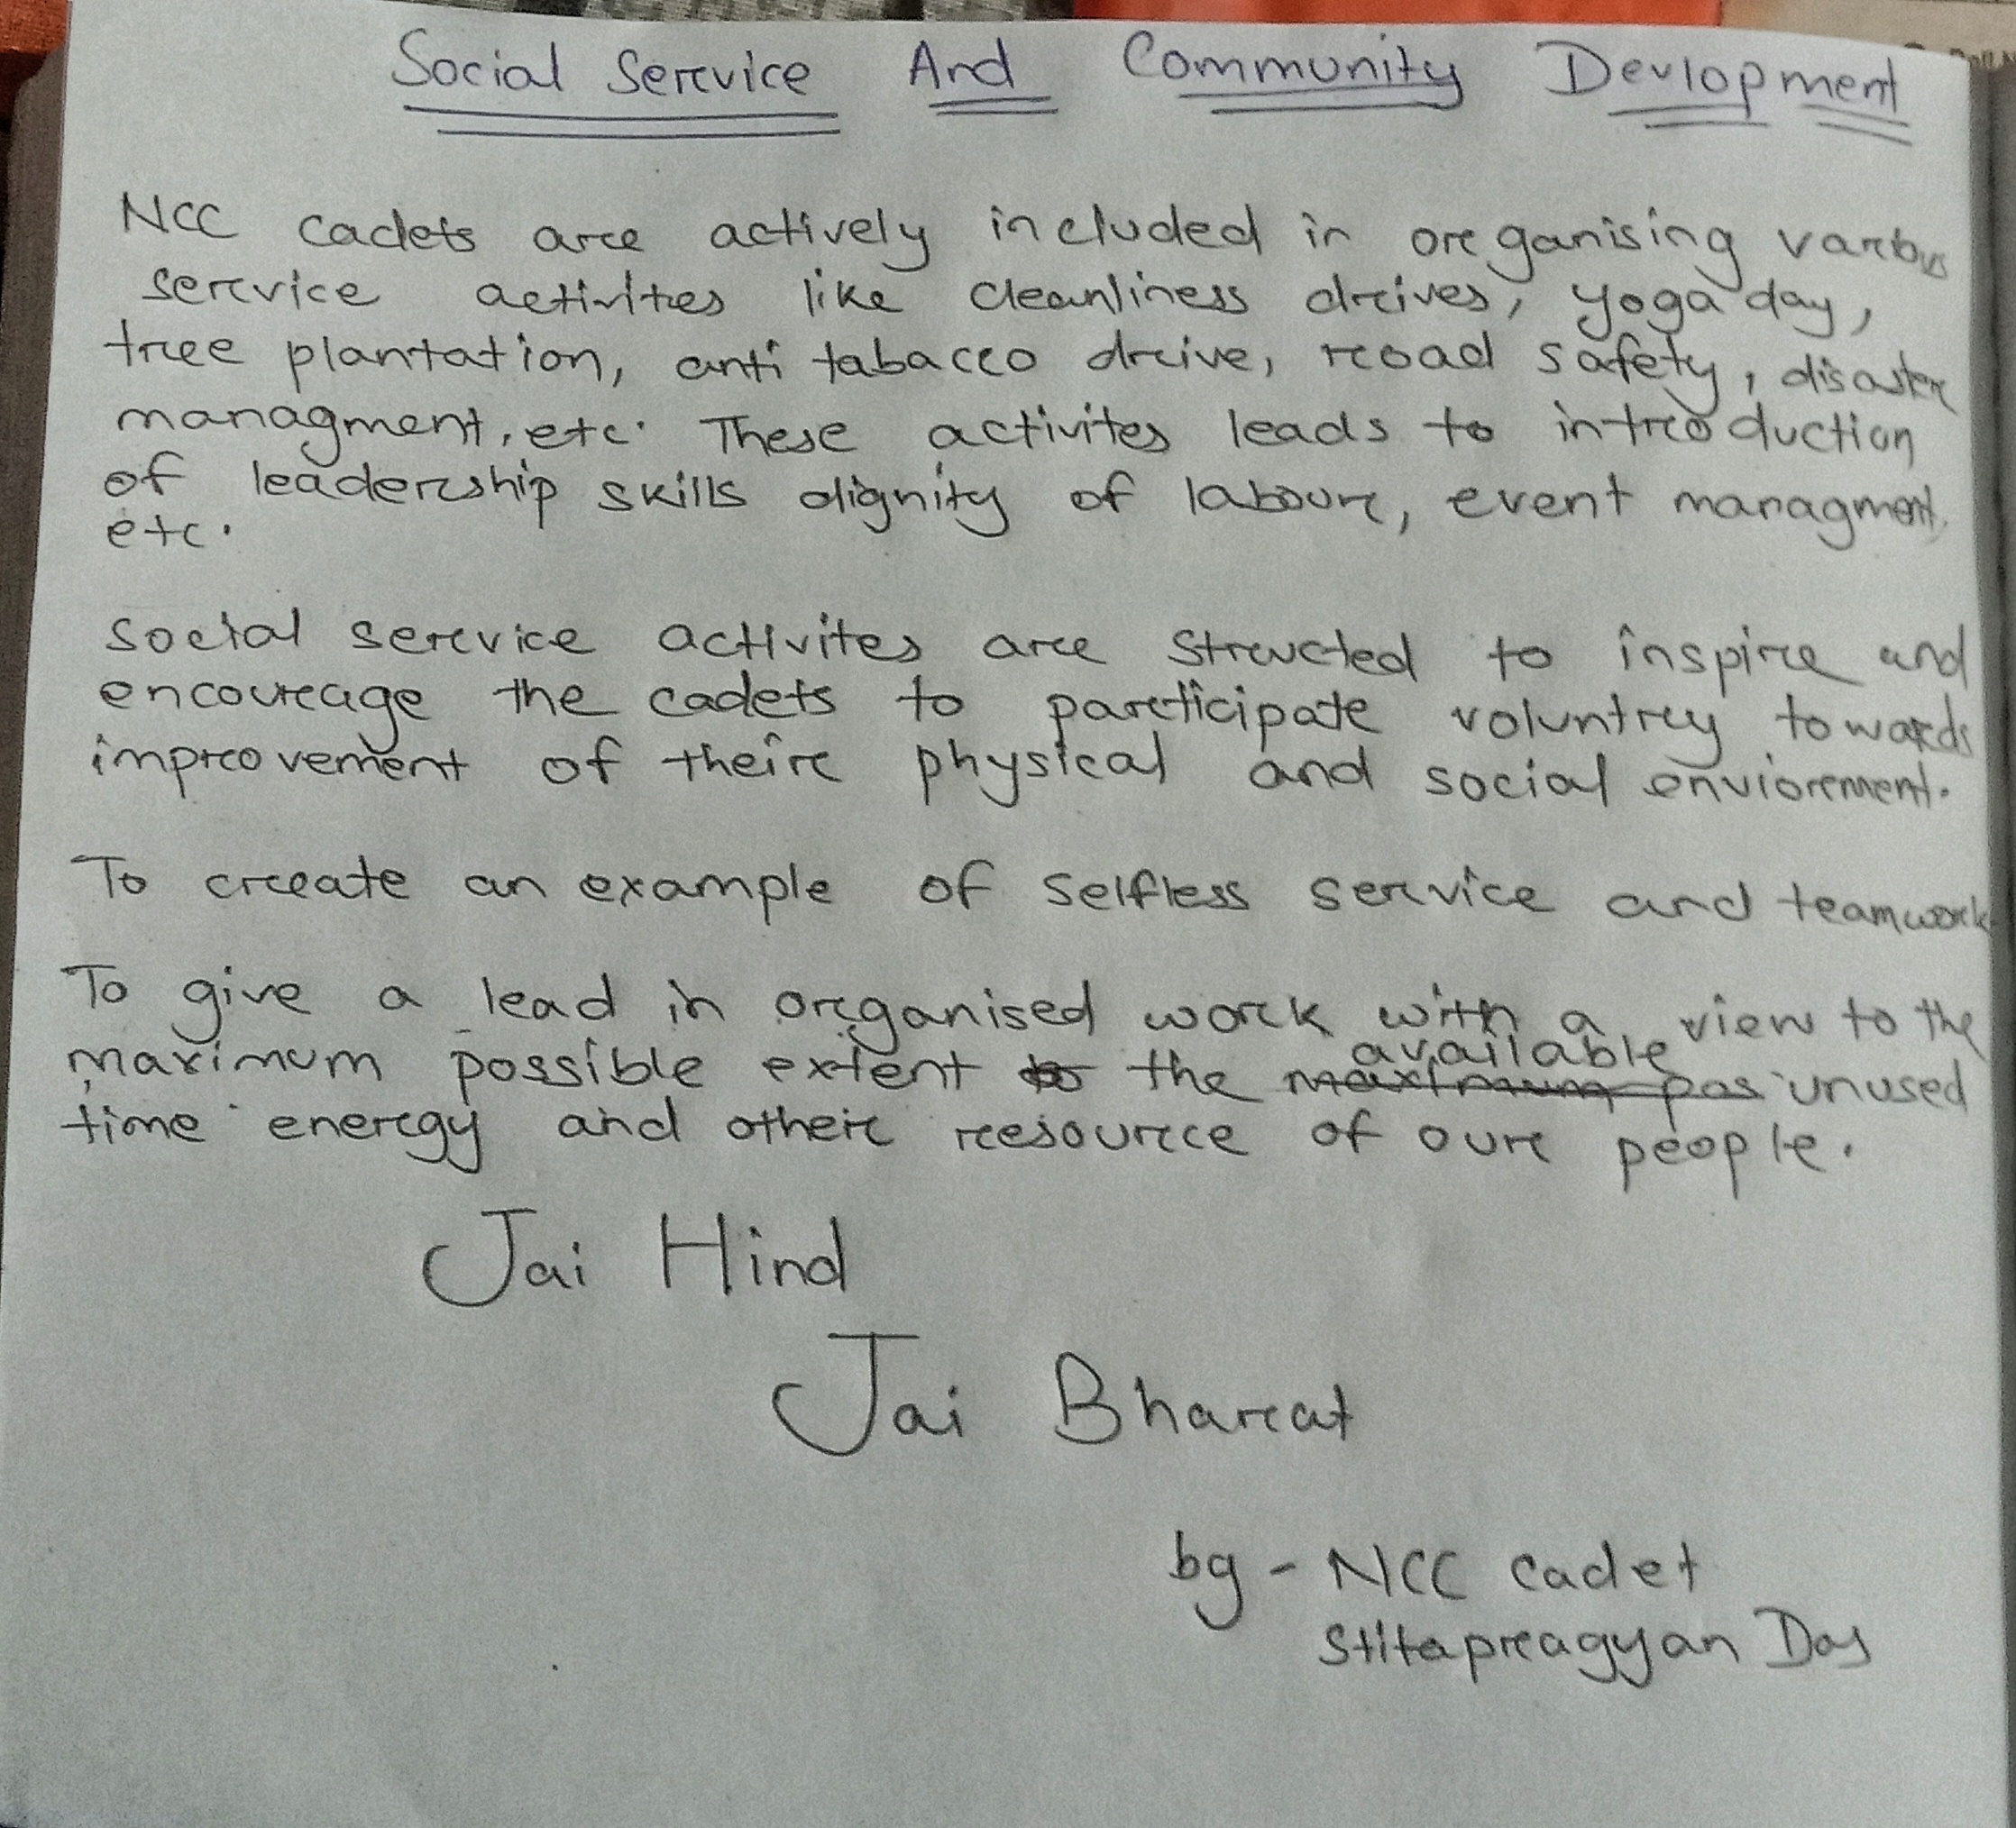 Social Service And Community Devlopment
NCC cadets are actively included in organising various
service activities like cleanliness drives, yoga day,
tree plantation, anti tabacco drive, road safety, disaster
managment, etc. These activites leads to introduction
of leadership skills dignity of labour, event managment
etc.
Social service activites are structed to inspire and
encourage the cadets to participate voluntry towards
improvement of their physical and social enviorement.
To create an example of selfless service and teamwork
To give a lead in organised work with a view to the
maximum possible extent to the maximum pos available unused
time energy and other resource of our people.
Jai Hind
Jai Bharat
by - NCC cadet
Stitapragyan Das